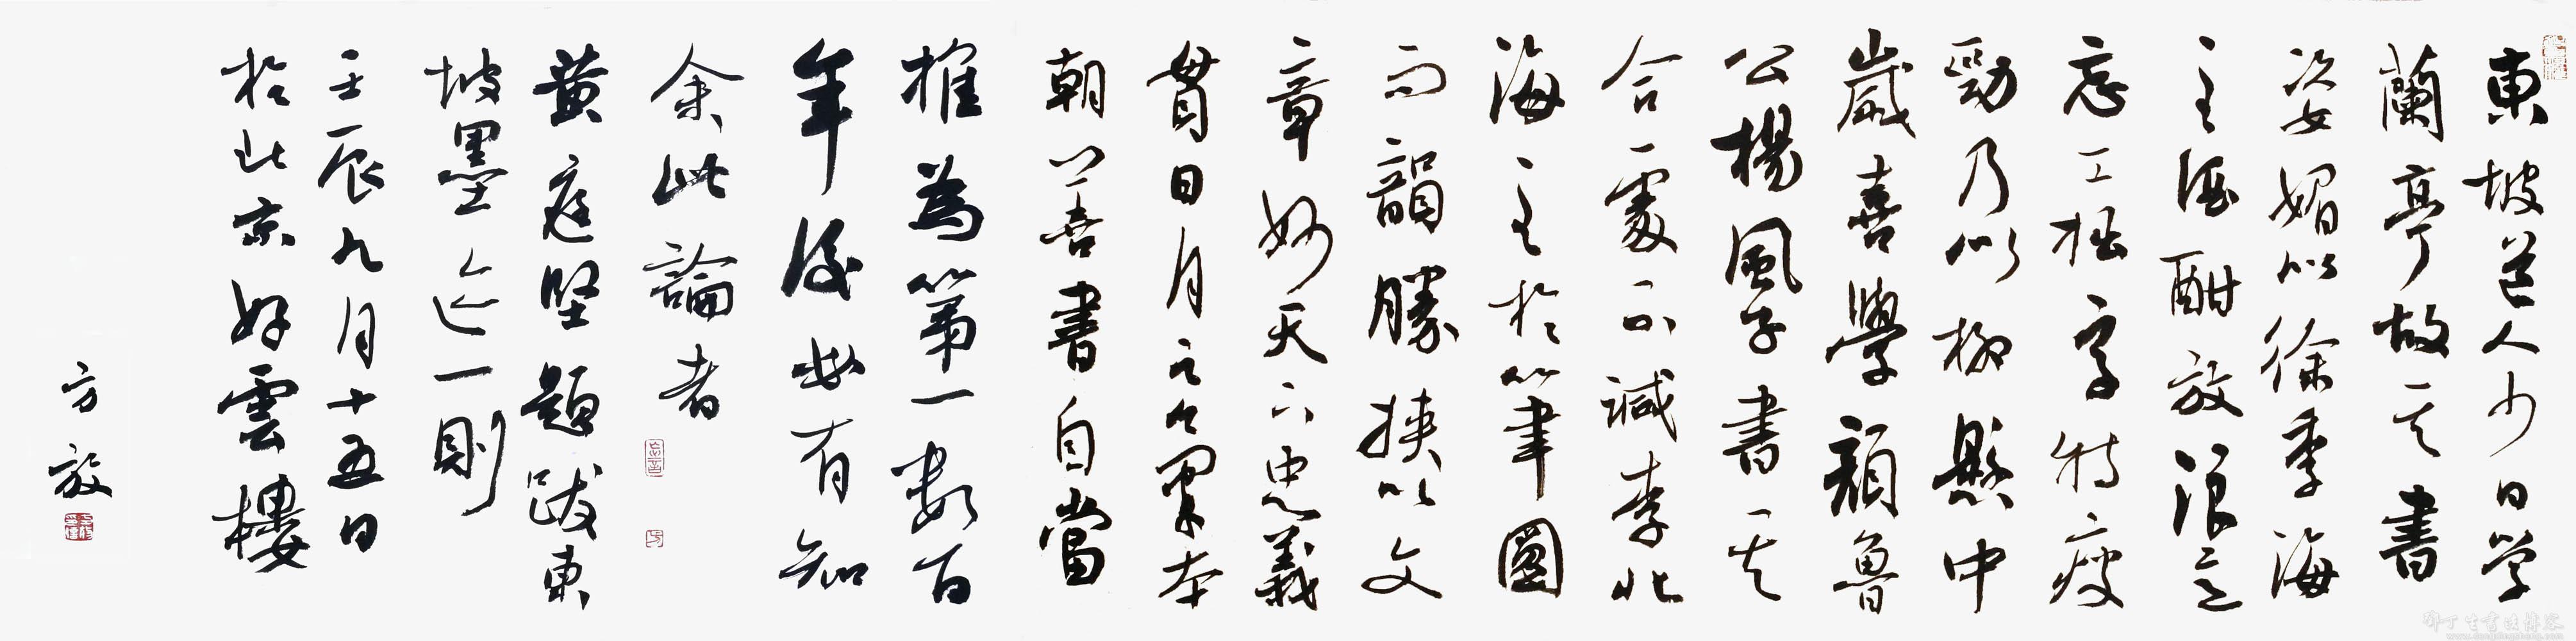 東坡道人少日學
蘭亭故其書
姿媚似徐季海
至酒酣放浪意
忘工拙字特瘦
勁乃似柳懸中
歲喜學顏魯
公楊風子書其
合處不減李北
海至於筆圓
而韻勝挾以文
章妙天下忠義
貫日月之氣本
朝善書自當
推為第一數百
年後必有知
余此論者
黃庭堅題跋東
坡墨迹一則
壬辰九月十五日
於北京好雲樓
方放